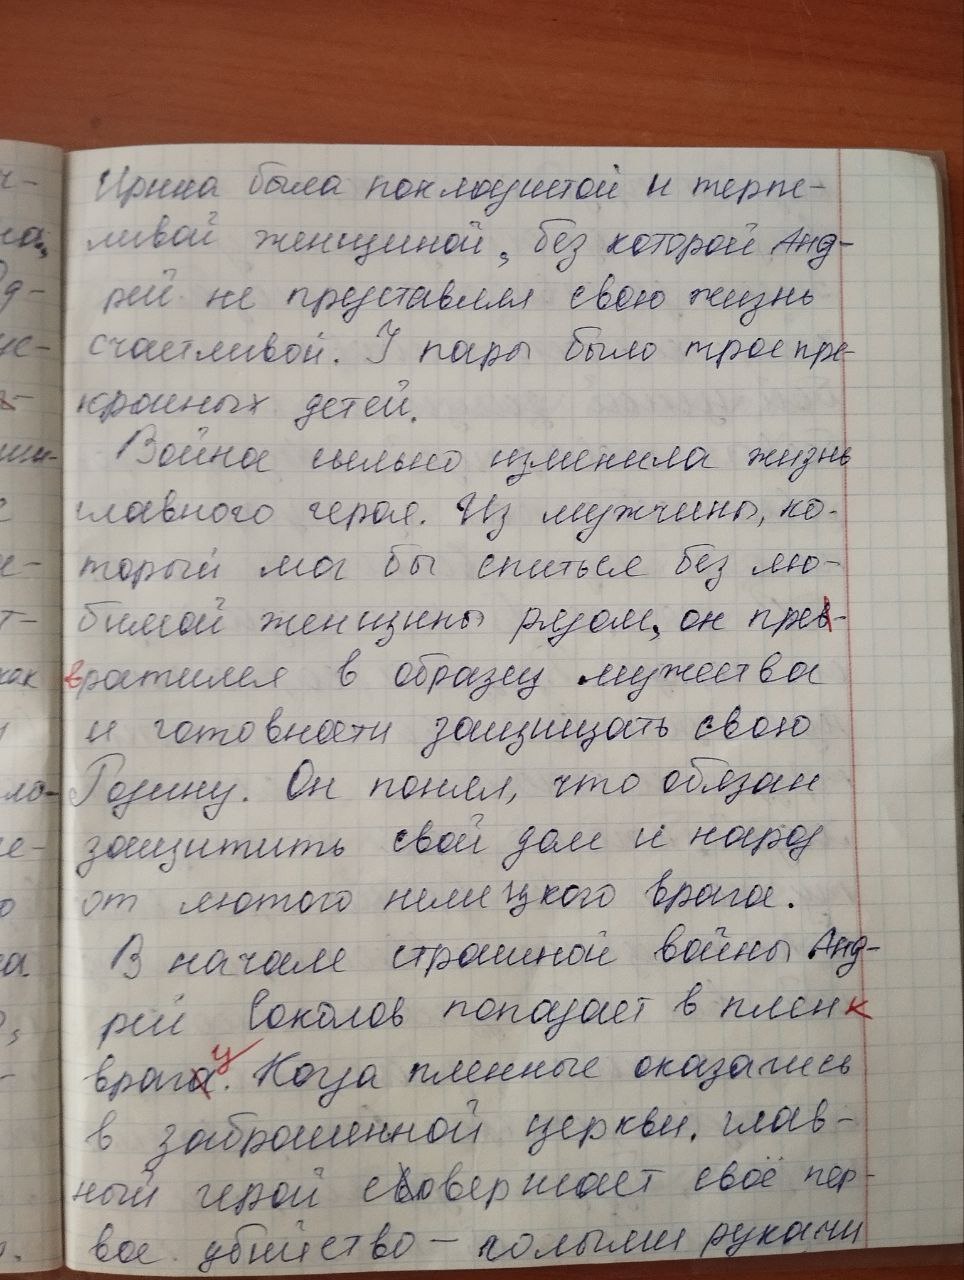 Ирина была покладистой и терпе-
ливой женщиной, без которой Анд-
рей не представлял свою жизнь
счастливой. У пары было трое пре-
красных детей.
Война сильно изменила жизнь
главного героя. Из мужчины, ко-
торый мог бы спиться без лю-
бимой женщины рядом, он пре-
вратился в образец мужества
и готовности защищать свою
Родину. Он понял, что обязан
защитить свой дом и народ
от лютого немецкого врага.
В начале страшной войны Анд-
рей Соколов попадает в плен к
врагу. Когда пленные оказались
в заброшенной церкви, глав-
ный герой совершает своё пер-
вое убийство – голыми руками